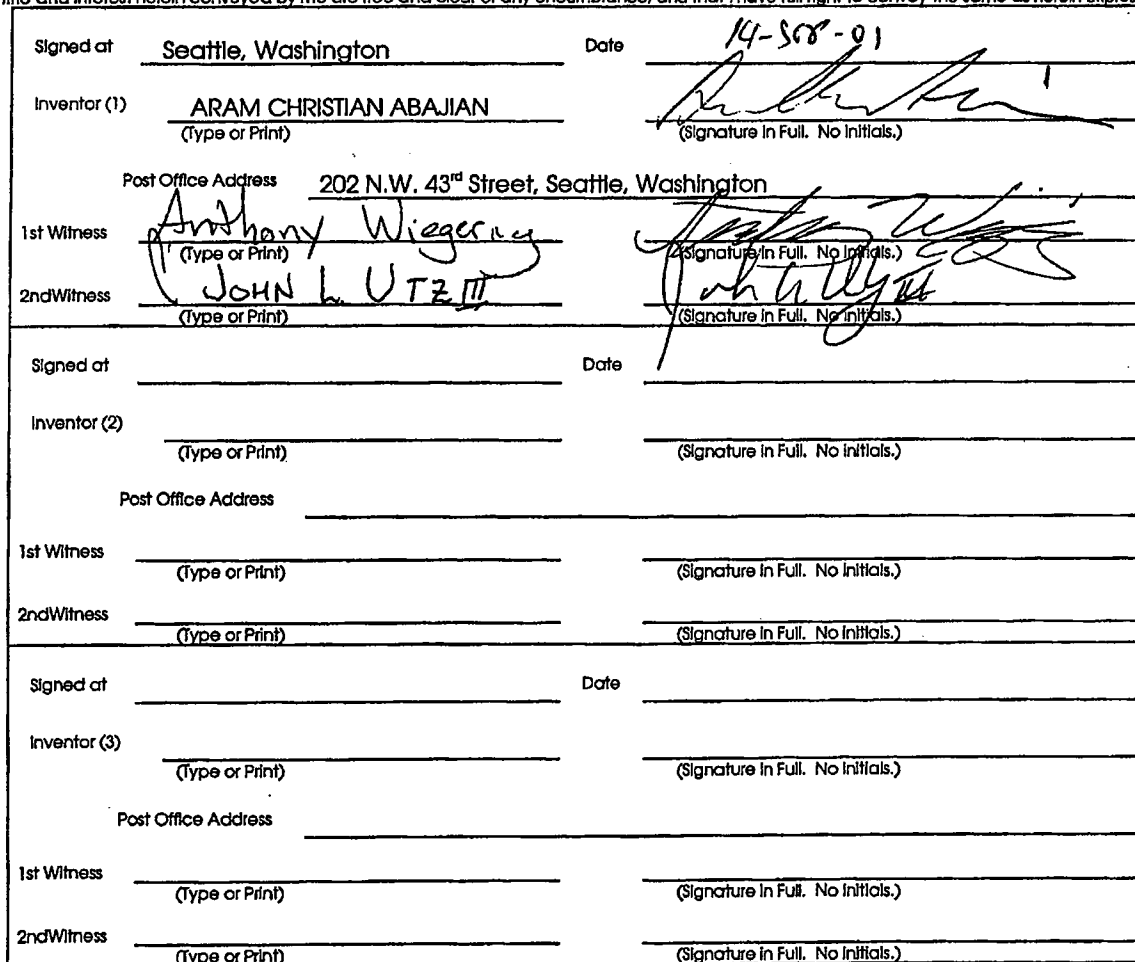 title and interest herein conveyed by me are free and clear of any encumbrance, and that I have full right to convey the same as herein
Signed at Seattle, Washington Date 14-SEP-01
Inventor (1) ARAM CHRISTIAN ABAJIAN
(Type or Print) (Signature in Full. No Initials.)
Post Office Address 202 N.W. 43rd Street, Seattle, Washington
1st Witness Anthony
(Type or Print) (Signature in Full. No Initials.)
2ndWitness JOHN L. UTZ III
(Type or Print) (Signature in Full. No Initials.)
Signed at Date
Inventor (2)
(Type or Print) (Signature in Full. No Initials.)
Post Office Address
1st Witness
(Type or Print) (Signature in Full. No Initials.)
2ndWitness
(Type or Print) (Signature in Full. No Initials.)
Signed at Date
Inventor (3)
(Type or Print) (Signature in Full. No Initials.)
Post Office Address
1st Witness
(Type or Print) (Signature in Full. No Initials.)
2ndWitness
(Type or Print) (Signature in Full. No Initials.)